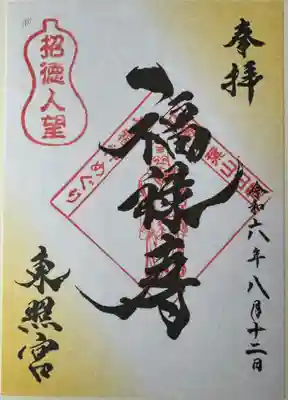 奉拝
令和六年八月十二日
福禄寿
めぐり
招徳人望
東照宮